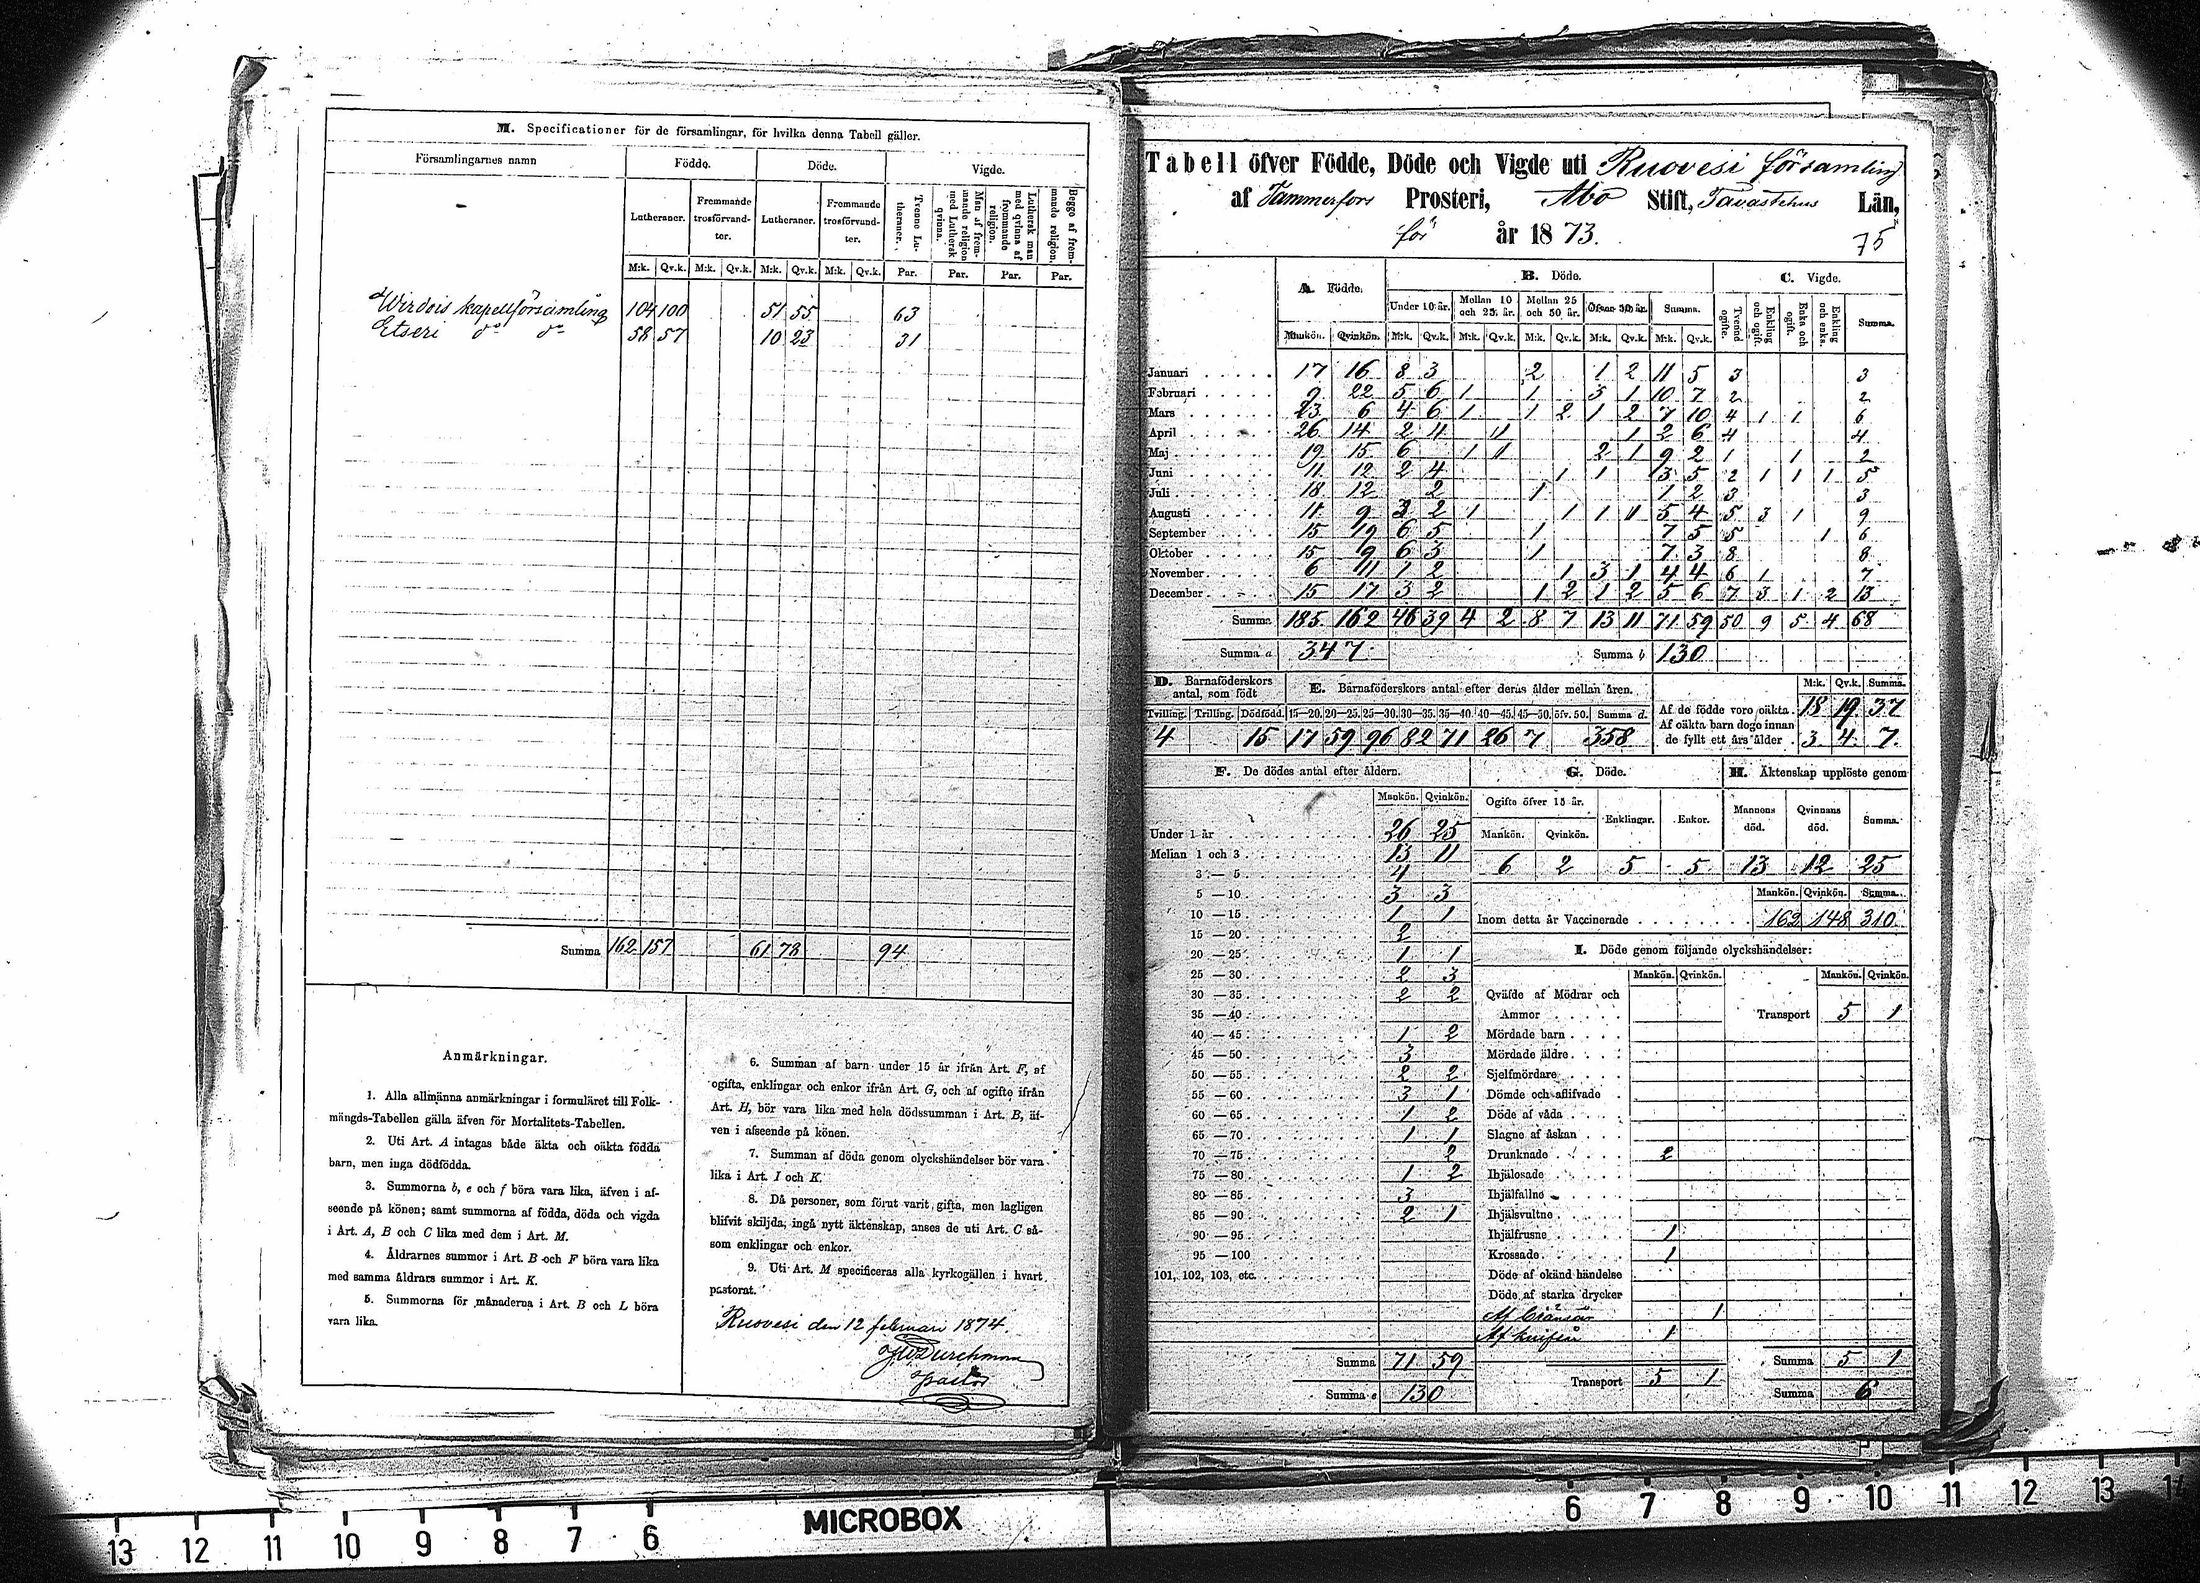 M. Specificationer för de församlingar, för hvilka denna Tabell gäller.
Församlingarnes namn | Födde. | Döde. | Vigde.
Lutheraner. | Fremmande trosförvandter. | Lutheraner. | Fremmande trosförvandter. | Tvenne Lutheraner. | Man af fremmande religion med Luthersk qvinna. | Luthersk man med qvinna af frommande religion. | Begge af fremmande religion.
M:k. | Qv.k. | M:k. | Qv.k. | M:k. | Qv.k. | M:k. | Qv.k. | Par. | Par. | Par. | Par.
Wirdois kapellförsamling 104 100 51 55 63
Etseri do do 58 57 10 23 31
Summa 162 157 61 78 94
Anmärkningar.
1. Alla allmänna anmärkningar i formuläret till Folk-
mängds-Tabellen gälla äfven för Mortalitets-Tabellen.
2. Uti Art. A intagas både äkta och oäkta födda
barn, men inga dödfödda.
3. Summorna b, e och f böra vara lika, äfven i af-
seende på könen; samt summorna af födda, döda och vigda
i Art. A, B och C lika med dem i Art. M.
4. Åldrarnes summor i Art. B och F böra vara lika
med samma åldrars summor i Art. K.
5. Summorna för månaderna i Art. B och L böra
vara lika.
6. Summan af barn under 15 år ifrån Art. F, af
ogifta, enklingar och enkor ifrån Art. G, och af ogifte ifrån
Art. H, bör vara lika med hela dödssumman i Art. B, äf-
ven i afseende på könen.
7. Summan af döda genom olyckshändelser bör vara
lika i Art. I och K.
8. Då personer, som förut varit gifta, men lagligen
blifvit skiljda, ingå nytt äktenskap, anses de uti Art. C så-
som enklingar och enkor.
9. Uti Art. M specificeras alla kyrkogällen i hvart
pastorat.
Ruovesi den 12 februari 1874.
Durchman
pastor
Tabell öfver Födde, Döde och Vigde uti Ruovesi församling
af Tammerfors Prosteri, Åbo Stift, Tavastehus Län,
för år 1873.
75
A. Födde. | B. Döde. | C. Vigde.
Under 10 år. | Mellan 10 och 25 år. | Mellan 25 och 50 år. | Öfver 50 år. | Summa. | Tvenne ogifte. | Enkling och ogift. | Enka och ogift. | Enkling och enka. | Summa.
Mankön. | Qvinkön. | M:k. | Qv.k. | M:k. | Qv.k. | M:k. | Qv.k. | M:k. | Qv.k. | M:k. | Qv.k.
Januari 17 16 8 3 2 1 2 11 5 3 3
Februari 9 22 5 6 1 1 3 1 10 7 2 2
Mars 23 6 4 6 1 1 2 1 2 7 10 4 1 1 6
April 26 14 2 4 1 1 2 6 4 4
Maj 19 15 6 1 1 2 1 9 2 1 1 2
Juni 11 12 2 4 1 1 3 5 2 1 1 1 5
Juli 18 12 2 1 1 2 3 3
Augusti 11 9 3 2 1 1 1 1 5 4 5 3 1 9
September 15 19 6 5 1 7 5 5 1 6
Oktober 15 9 6 3 1 7 3 8 8
November 6 11 1 2 1 3 1 4 4 6 1 7
December 15 17 3 2 1 2 1 2 5 6 7 3 1 2 13
Summa 185 162 46 39 4 2 8 7 13 11 71 59 50 9 5 4 68
Summa a 347 Summa b 130
D. Barnaföderskors antal, som födt | E. Barnaföderskors antal efter deras ålder mellan åren.
M:k. | Qv.k. | Summa.
Tvilling. | Trilling. | Dödfödd. | 15—20. | 20—25. | 25—30. | 30—35. | 35—40. | 40—45. | 45—50. | öfv. 50. | Summa d.
4 15 17 59 96 82 71 26 7 358
Af de födde voro oäkta 18 19 37
Af oäkta barn dogo innan
de fyllt ett års ålder 3 4 7
F. De dödes antal efter åldern.
Mankön. | Qvinkön.
Under 1 år 26 25
Mellan 1 och 3 13 11
3 — 5 4
5 — 10 3 3
10 — 15 1 1
15 — 20 2
20 — 25 1 1
25 — 30 2 3
30 — 35 2 2
35 — 40
40 — 45 1 2
45 — 50 3
50 — 55 2 2
55 — 60 3 1
60 — 65 1 2
65 — 70 1 1
70 — 75 2
75 — 80 1 2
80 — 85 3
85 — 90 2 1
90 — 95
95 — 100
101, 102, 103, etc.
Summa 71 59
Summa e 130
G. Döde. | H. Äktenskap upplöste genom
Ogifte öfver 15 år. | Enklingar. | Enkor. | Mannens död. | Qvinnans död. | Summa.
Mankön. | Qvinkön.
6 2 5 5 13 12 25
Mankön. | Qvinkön. | Summa.
Inom detta år Vaccinerade 162 148 310
I. Döde genom följande olyckshändelser:
Mankön. | Qvinkön. | Mankön. | Qvinkön.
Qväfde af Mödrar och
Ammor
Transport 5 1
Mördade barn
Mördade äldre
Sjelfmördare
Dömde och aflifvade
Döde af våda
Slagne af åskan
Drunknade 2
Ihjälosade
Ihjälfallne
Ihjälsvultne
Ihjälfrusne 1
Krossade 1
Döde af okänd händelse
Döde af starka drycker
Af 1
Af 1
Transport 5 1
Summa 5 1
Summa 6
13 12 11 10 9 8 7 6 MICROBOX 6 7 8 9 10 11 12 13 14